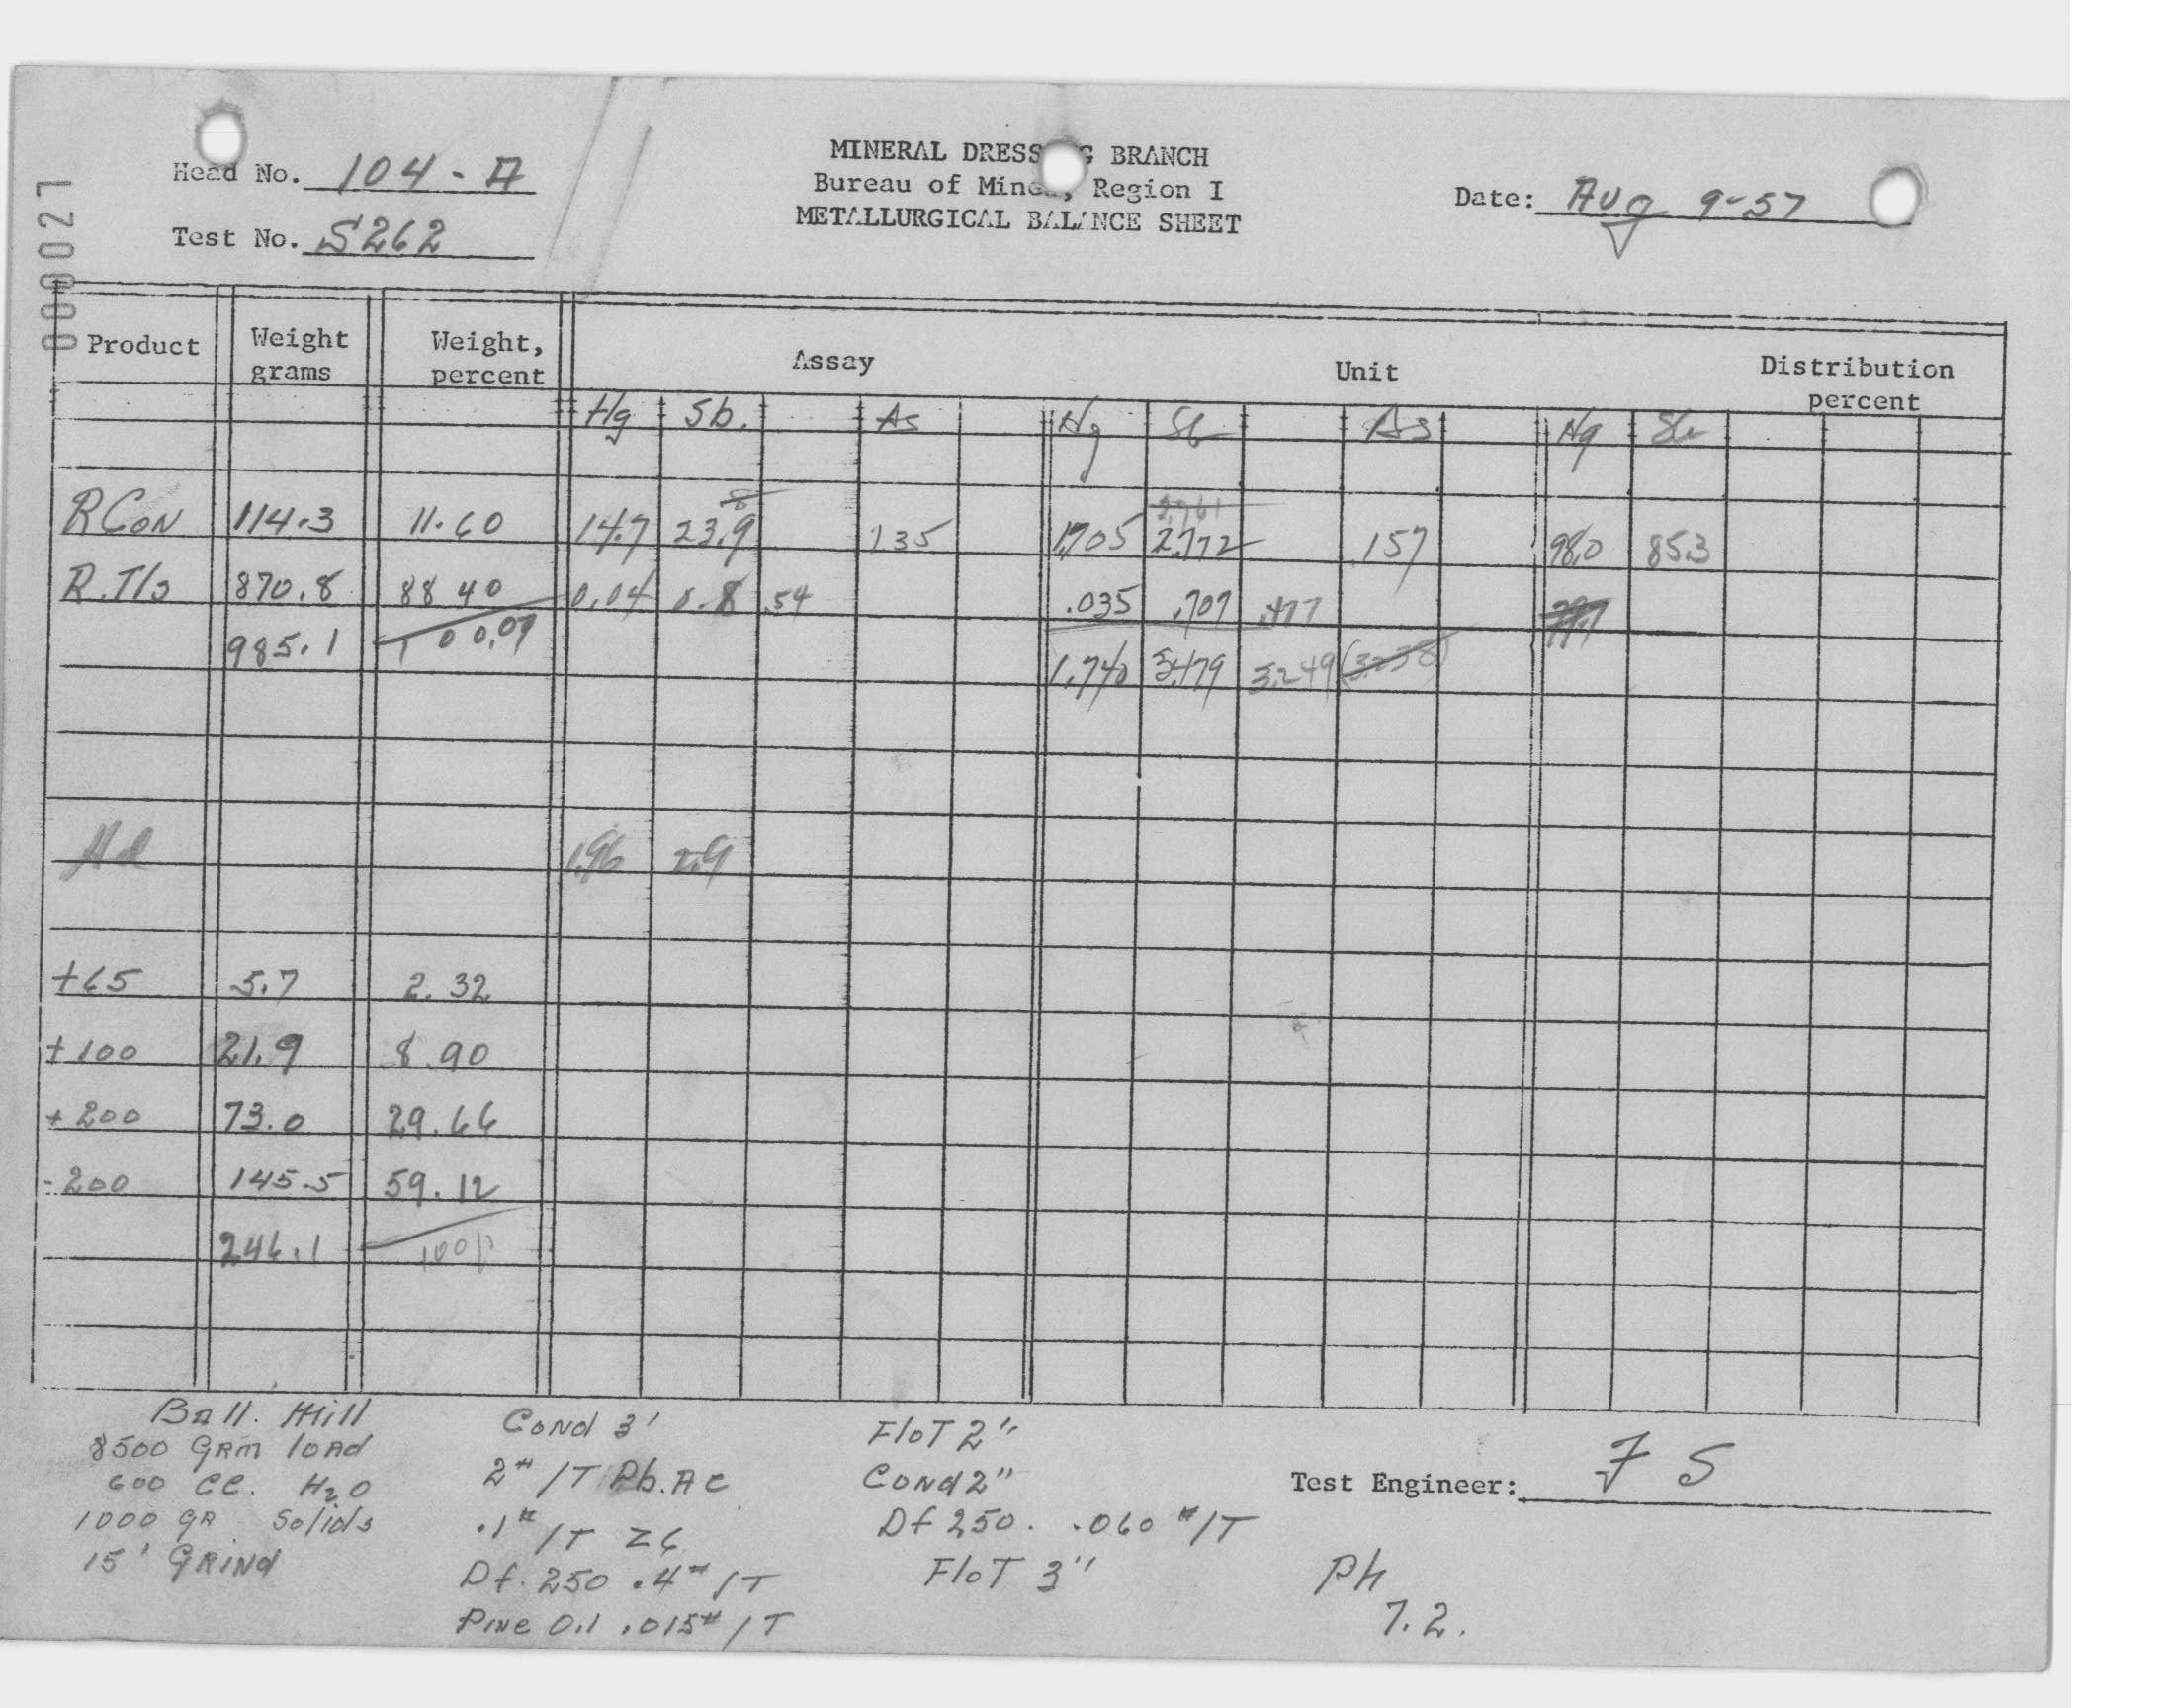 000027
Head No. 104-A
Test No. S262
MINERAL DRESS G BRANCH
Bureau of Mines, Region I
METALLURGICAL BALANCE SHEET
Date: Aug 9-57
Product Weight grams Weight, percent Assay Unit Distribution percent
Hg Sb. As Hg Sb As Hg Sb
8 2.761
R Con 114.3 11.60 14.7 23.9 135 1.705 2.772 .157 98.0 85.3
R. Tls 870.8 88 40 0.04 0.8 .54 .035 .707 .477
985.1 100.0 1.740 3.479 3.249 (3.238)
Hd 1.96 2.9
+65 5.7 2.32
+100 21.9 8.90
+200 73.0 29.66
-200 145.5 59.12
246.1 100
Ball. Mill
8500 GRM load
600 CC. H2O
1000 GR Solids
15' GRINd
Cond 3'
2# /T Pb. Ac
.1# /T Z6
Df. 250 .4# /T
PiNe Oil .015# /T
FloT 2"
Cond 2"
Df 250. .060 #/T
FloT 3"
Test Engineer: F S
Ph
7.2.